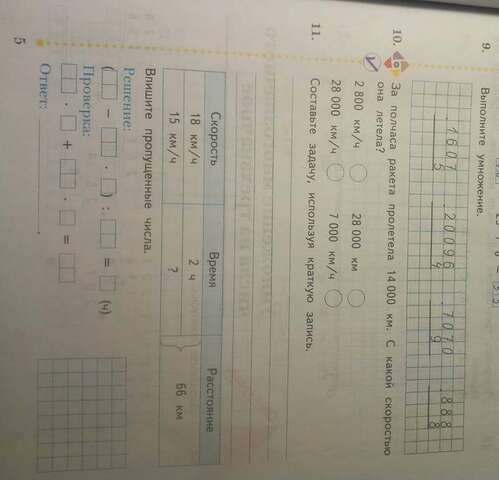 9. Выполните умножение.
1607 20096 7070 888
5 4 9 8
10. За полчаса ракета пролетела 14 000 км. С какой скоростью
она летела?
2 800 км/ч 28 000 км
28 000 км/ч 7 000 км/ч
11. Составьте задачу, используя краткую запись.
Скорость Время Расстояние
18 км/ч 2 ч
66 км
15 км/ч ?
Впишите пропущенные числа.
Решение:
( − · ) : = (ч)
Проверка:
· + · =
Ответ: .
5